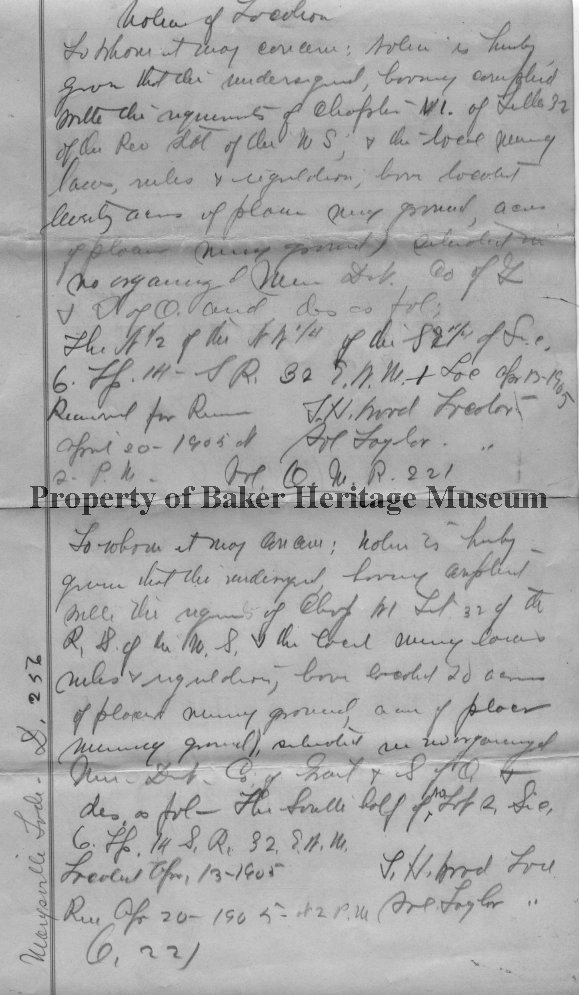 Notice of Location
To whom it may concern; Notice is hereby
given that the undersigned, having complied
with the requirements of Chapter VI. of Title 32
of the Rev Stt of the U S, & the local mining
laws, rules & regulation, have located
twenty acres of placer ming ground, acres
of placer ming ground) situated in
no organized Min Dist. Co of G
& S of O. and des as fol;
The N 1/2 of the N W 1/4 of the S E 1/4 of Sec,
6. Tp. 14 - S R. 32 E. W. M. & Loc Apr 13-1905
Received for Recor S. H. Wood Locators
April 20 - 1905 at Sol Taylor "
2. P. M. Vol. O M. R. 221
Property of Baker Heritage Museum
To whom it may concern; notice is hereby
given that the undersigned, having complied
with the requirments of Chap VI Tit. 32 of the
R. S. of the U. S. & the local mining laws
rules & regulation, have located 20 acres
of placer mining ground, acres of placer
mining ground), situated in no organized
Min - Dist - Co. of Grant & S of O &
des, as fol - The South half of Lot 2, Sec,
6. Tp. 14 S. R. 32. E. W. M.
Located Apr, 13-1905 S. H. Wood Loc
Rec Apr 20 - 1905 - at 2 P. M Sol Taylor "
O, 221
Marysville Lode - D. 256